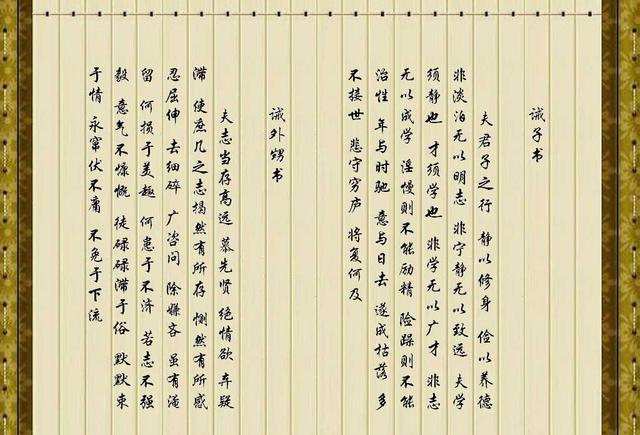 诫子书
夫君子之行 静以修身 俭以养德
非淡泊无以明志 非宁静无以致远 夫学
须静也 才须学也 非学无以广才 非志
无以成学 淫慢则不能励精 险躁则不能
治性 年与时驰 意与日去 遂成枯落 多
不接世 悲守穷庐 将复何及
诫外甥书
夫志当存高远 慕先贤 绝情欲 弃疑
滞 使庶几之志揭然有所存 恻然有所感
忍屈伸 去细碎 广咨问 除嫌吝 虽有淹
留 何损于美趣 何患于不济 若志不强
毅 意气不慷慨 徒碌碌滞于俗 默默束
于情 永窜伏不庸 不免于下流